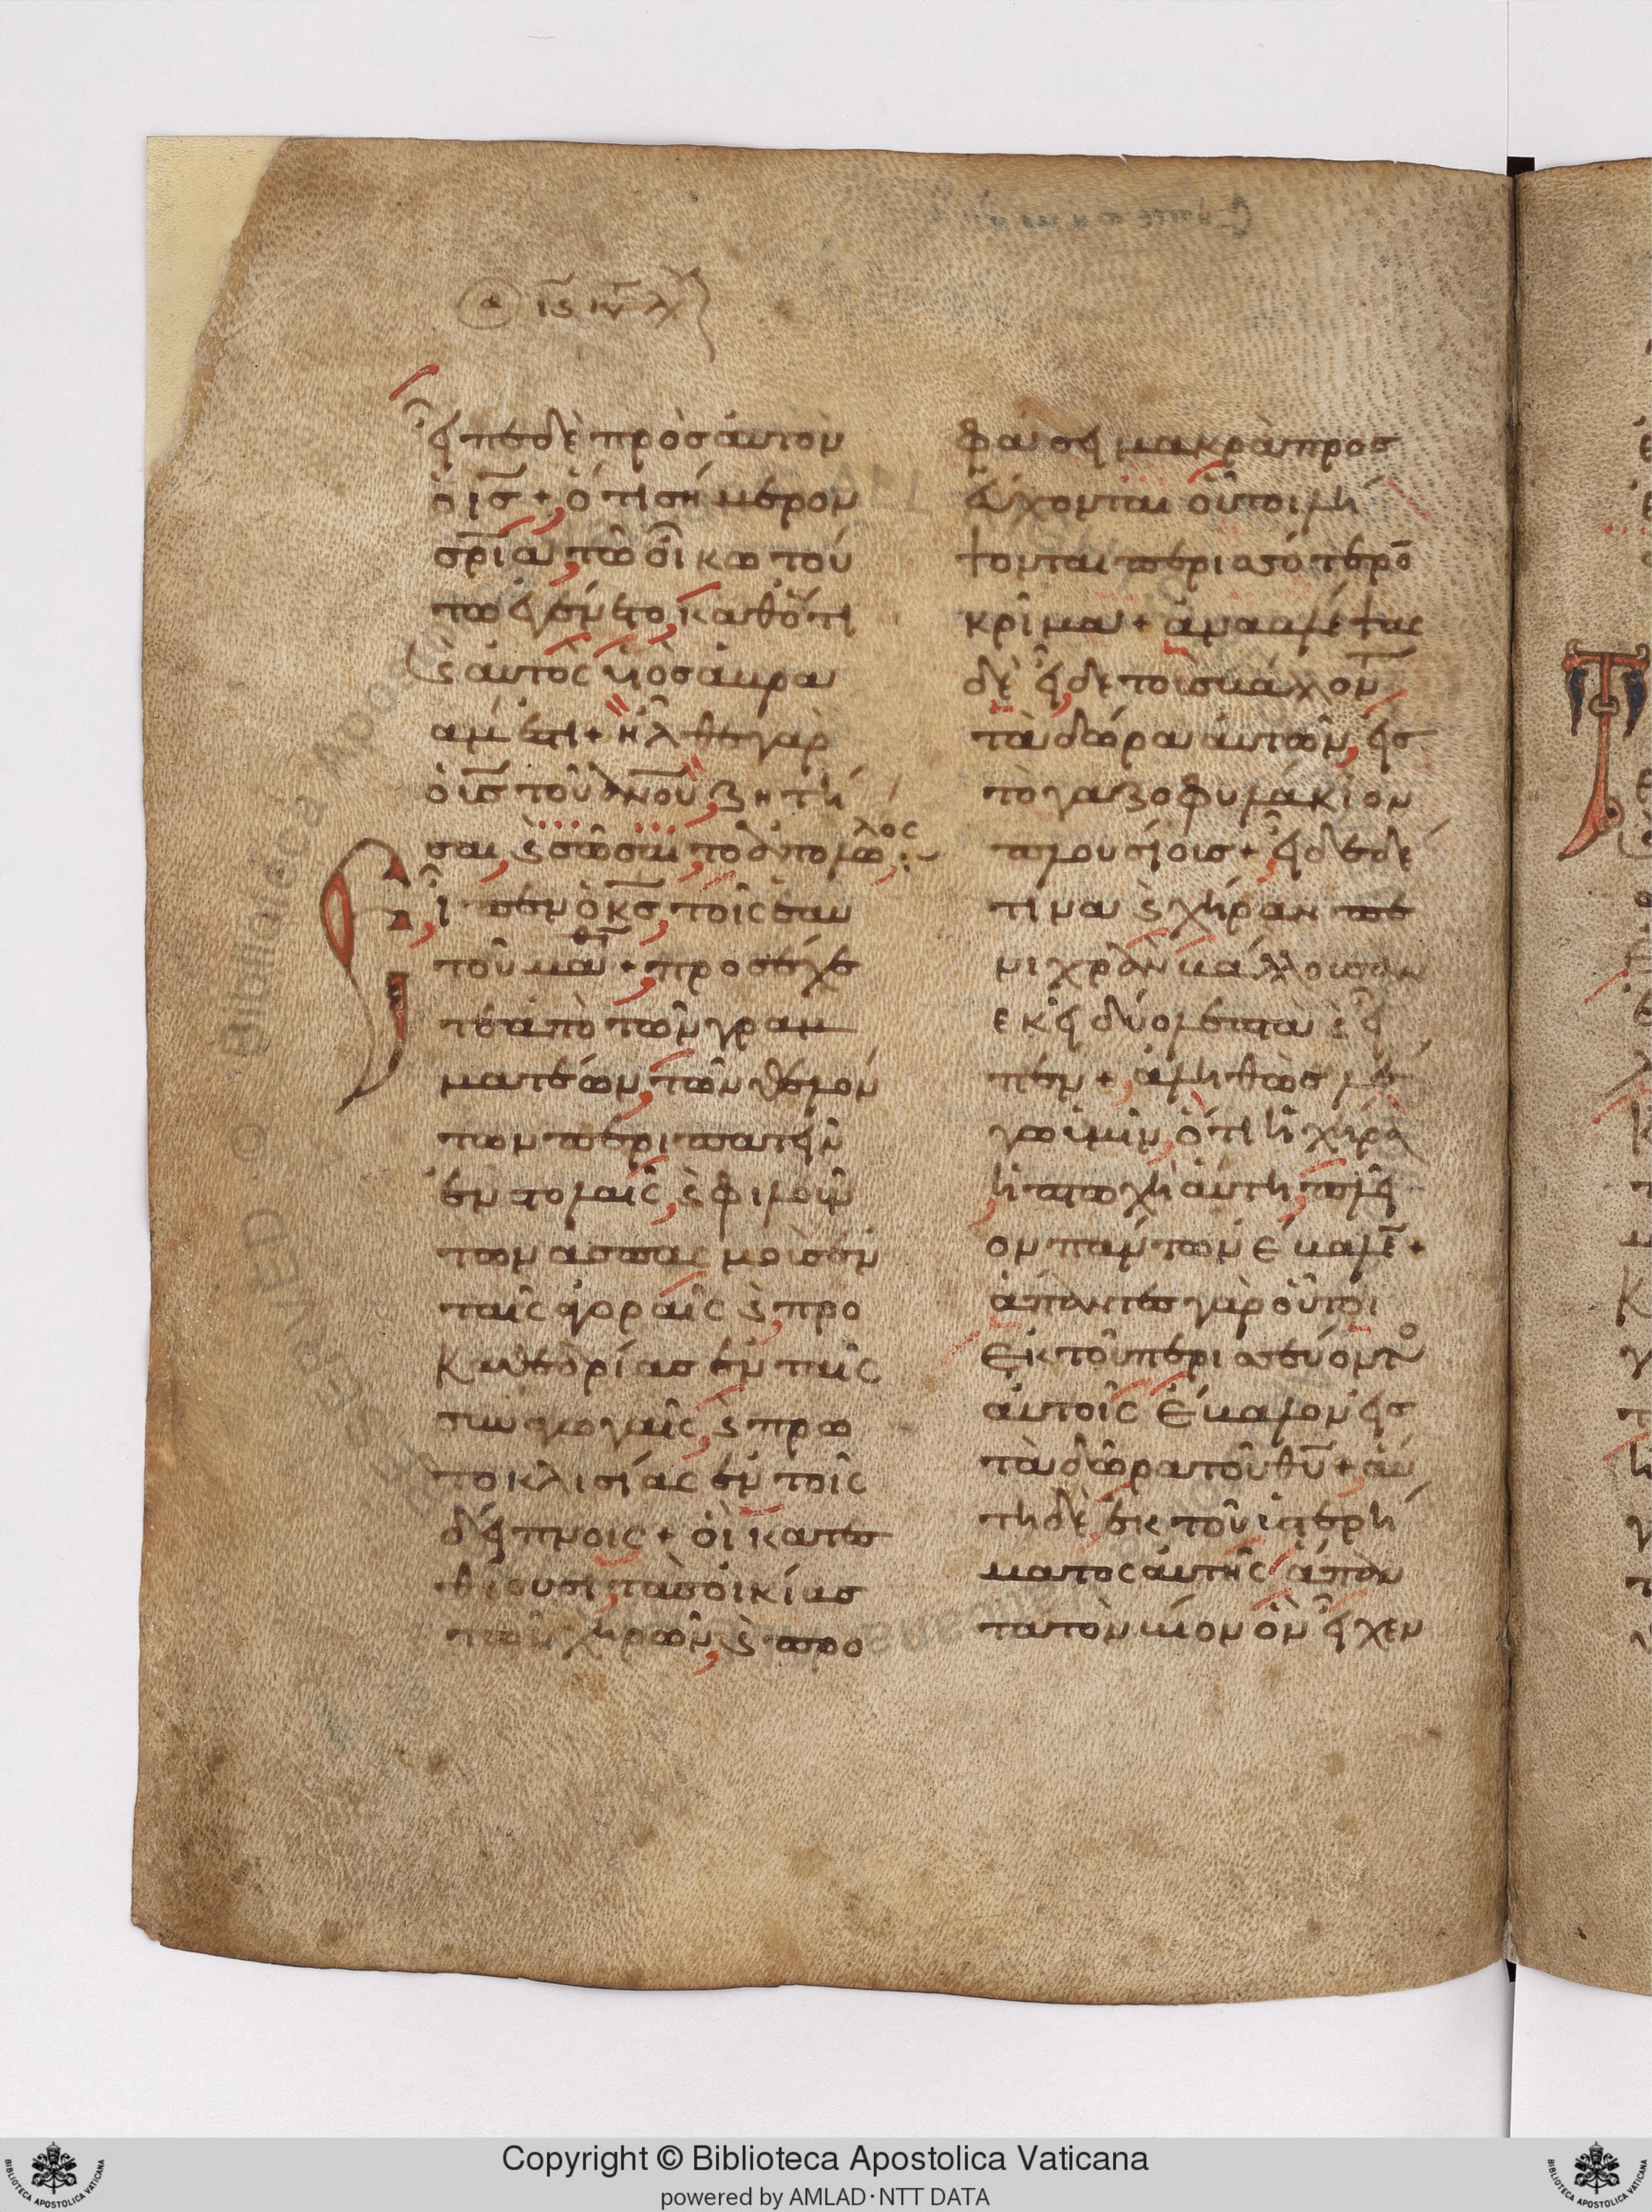 εἶπε δὲ πρὸς αὐτὸν
ὁ ις̅ + ὅτι σήμερον
σρ̅ία τῶ οἴκω τού
τω ἐγένετο, καθότι
ϛ αὐτὸς υιὸς ἀβρα
άμ ἐστι + ἦλθε γὰρ
ὁ υς̅ τοῦ ἀνο̅υ, ζητῆ
σαι, ϛ σῶσαι, τὸ ἀπολωλός
Εἶπεν ὁ κς̅, τοῖς ἑαυ
τοῦ μαθ + προσέχε
τε ἀπὸ τῶν γραμ
ματέων, τῶν θελόν
των περιπατεῖν
ἐν στολαῖς, ϛ φιλούν
των ἀσπασμοὺς ἐν
ταῖς ἀγοραῖς ϛ προ
καθεδρίας ἐν ταῖς
συναγωγαῖς, ϛ πρω
τοκλισίας ἐν τοῖς
δείπνοις + οἱ κατε
σθίουσι, τὰς οἰκίας
τῶν χηρῶν, ϛ προ
φάσει μακρὰ προσ
εύχονται οὗτοι λή
ψονται περισσότερο̅
κρῖμα + ἀναβλέψας
δὲ εἶδε τοὺς βάλλον̅
τὰ δῶρα αὐτῶν, εἰς
τὸ γαζοφυλάκιον
πλουσίους + εἶδε δέ
τινα ϛ χήραν πε
νιχρὰν βάλλουσαν
ἐκεῖ δύο λεπτὰ ϛ εἶ
πεν + ἀληθῶς λέ
γω ὑμῖν, ὅτι ἡ χήρα
ἡ πτωχὴ αὕτη, πλεῖ
ον πάντων ἔβαλε̅ +
ἅπαντες γὰρ οὗτοι
ἐκ τοῦ περισσεύοντο
αὐτοῖς ἔβαλον εἰς
τὰ δῶρα τοῦ θυ̅ + αὕ
τη δὲ, ἐκ τοῦ ὑστερή
ματος αὐτῆς ἅπαν
τα τὸν βίον ὃν εἶχεν
Copyright © Biblioteca Apostolica Vaticana
powered by AMLAD·NTT DATA